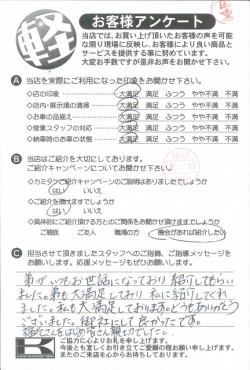 軽
お客様アンケート
当店では、お買い上げ頂いたお客様の声を可能
な限り現場に反映し、お客様により良い商品と
サービスを提供する事に努めています。
大変お手数ですが是非お声をお聞かせ下さい。
A 当店を実際にご利用になった印象をお聞かせ下さい。
◇店の印象 大満足 満足 ふつう やや不満 不満
◇店内・展示場の清掃 大満足 満足 ふつう やや不満 不満
◇お車の品揃え 大満足 満足 ふつう やや不満 不満
◇営業スタッフの対応 大満足 満足 ふつう やや不満 不満
◇納車時のお車の状態 大満足 満足 ふつう やや不満 不満
B 当店はご紹介を大切にしております。
ご紹介キャンペーンについてお聞かせ下さい。
◇カミタウご紹介キャンペーンのご説明はありましたでしょうか
はい いいえ
◇ご紹介を頂けますでしょうか
はい いいえ
◇具体的にご紹介頂ける方とのご関係をお聞かせ頂けますでしょうか
ご親族 ご友人 職場の方 機会があれば紹介したい
C 担当させて頂きましたスタッフへのご指摘、ご指導メッセージを
お願いします。応援メッセージもぜひお願いします。
弟がいつもお世話になっており紹介してもらい
ました。弟も大満足しており、私に紹介してくれ
ました。私も大満足しております。どうもありがとう
ございました。御社にして良かったです。
さんをはじめ皆さん親切でした。
ご協力に心よりお礼を申し上げます。
今後とも宜しくお引き立てご愛顧の程お願い申し上げます。
またのご来店を心からお待ちしております。